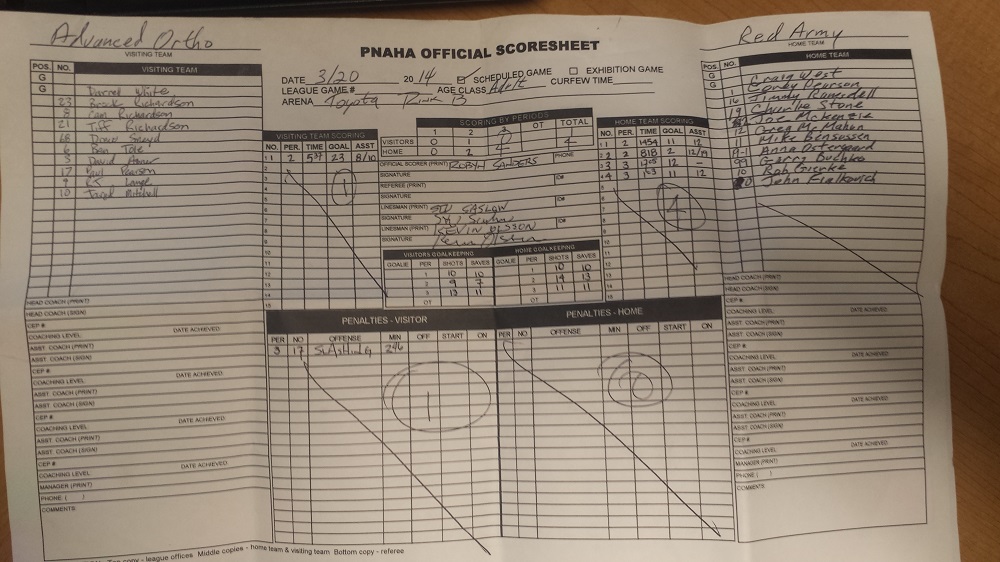 Advanced Ortho
VISITING TEAM
PNAHA OFFICIAL SCORESHEET
Red Army
HOME TEAM
DATE 3/20 2014 SCHEDULED GAME EXHIBITION GAME
LEAGUE GAME # AGE CLASS Adult CURFEW TIME
ARENA Toyota Rink B
POS. NO. VISITING TEAM
G
G Darrel White
23 Brook Richardson
8 Pam Richardson
21 Tiff Richardson
6 Ben Tate
3 David
17 Paul Pearson
Lange
10 Jared Mitchell
VISITING TEAM SCORING
NO. PER. TIME GOAL ASST
1 2 537 23 8/10
1
SCORING BY PERIODS
1 2 3 OT TOTAL
VISITORS 0 1
HOME 0 2
OFFICIAL SCORER (PRINT) ROBYN SANDERS PHONE
SIGNATURE
REFEREE (PRINT) ID#
SIGNATURE
LINESMAN (PRINT) STU GASLOW ID#
SIGNATURE
LINESMAN (PRINT) KEVIN OLSSON ID#
SIGNATURE
HOME TEAM SCORING
NO. PER. TIME GOAL ASST
1 2 1454 11 12
2 2 818 2 12/19
3 3 12 -
4 3 11 12
4
POS. NO. HOME TEAM
G
G Craig West
1 Cordy Pearson
16 Jimmy
19 Charlie Stone
Joe McKenzie
12 Greg McMahon
11 Mike Bensussen
Anna Ostergaard
99 Gerry Buchko
10 Bob Gierke
John Fialkovich
VISITORS GOALKEEPING
GOALIE PER SHOTS SAVES
1 10 10
2 9 7
3 13 11
OT
HOME GOALKEEPING
GOALIE PER SHOTS SAVES
1 10 10
2 14 13
3 11 11
OT
PENALTIES - VISITOR
PER NO OFFENSE MIN OFF START ON
3 17 SLASHING 246
1
PENALTIES - HOME
PER NO. OFFENSE MIN OFF START ON
0
HEAD COACH (PRINT)
HEAD COACH (SIGN)
CEP #
COACHING LEVEL DATE ACHIEVED
ASST. COACH (PRINT)
ASST. COACH (SIGN)
CEP #
COACHING LEVEL DATE ACHIEVED
ASST. COACH (PRINT)
ASST. COACH (SIGN)
CEP #
COACHING LEVEL DATE ACHIEVED
ASST. COACH (PRINT)
ASST. COACH (SIGN)
CEP #
COACHING LEVEL DATE ACHIEVED
MANAGER (PRINT)
PHONE ( )
COMMENTS:
HEAD COACH (PRINT)
HEAD COACH (SIGN)
CEP #
COACHING LEVEL DATE ACHIEVED
ASST. COACH (PRINT)
ASST. COACH (SIGN)
CEP #
COACHING LEVEL DATE ACHIEVED
ASST. COACH (PRINT)
ASST. COACH (SIGN)
CEP #
COACHING LEVEL DATE ACHIEVED
ASST. COACH (PRINT)
ASST. COACH (SIGN)
CEP #
COACHING LEVEL DATE ACHIEVED
MANAGER (PRINT)
PHONE ( )
COMMENTS:
copy - league offices Middle copies - home team & visiting team Bottom copy - referee